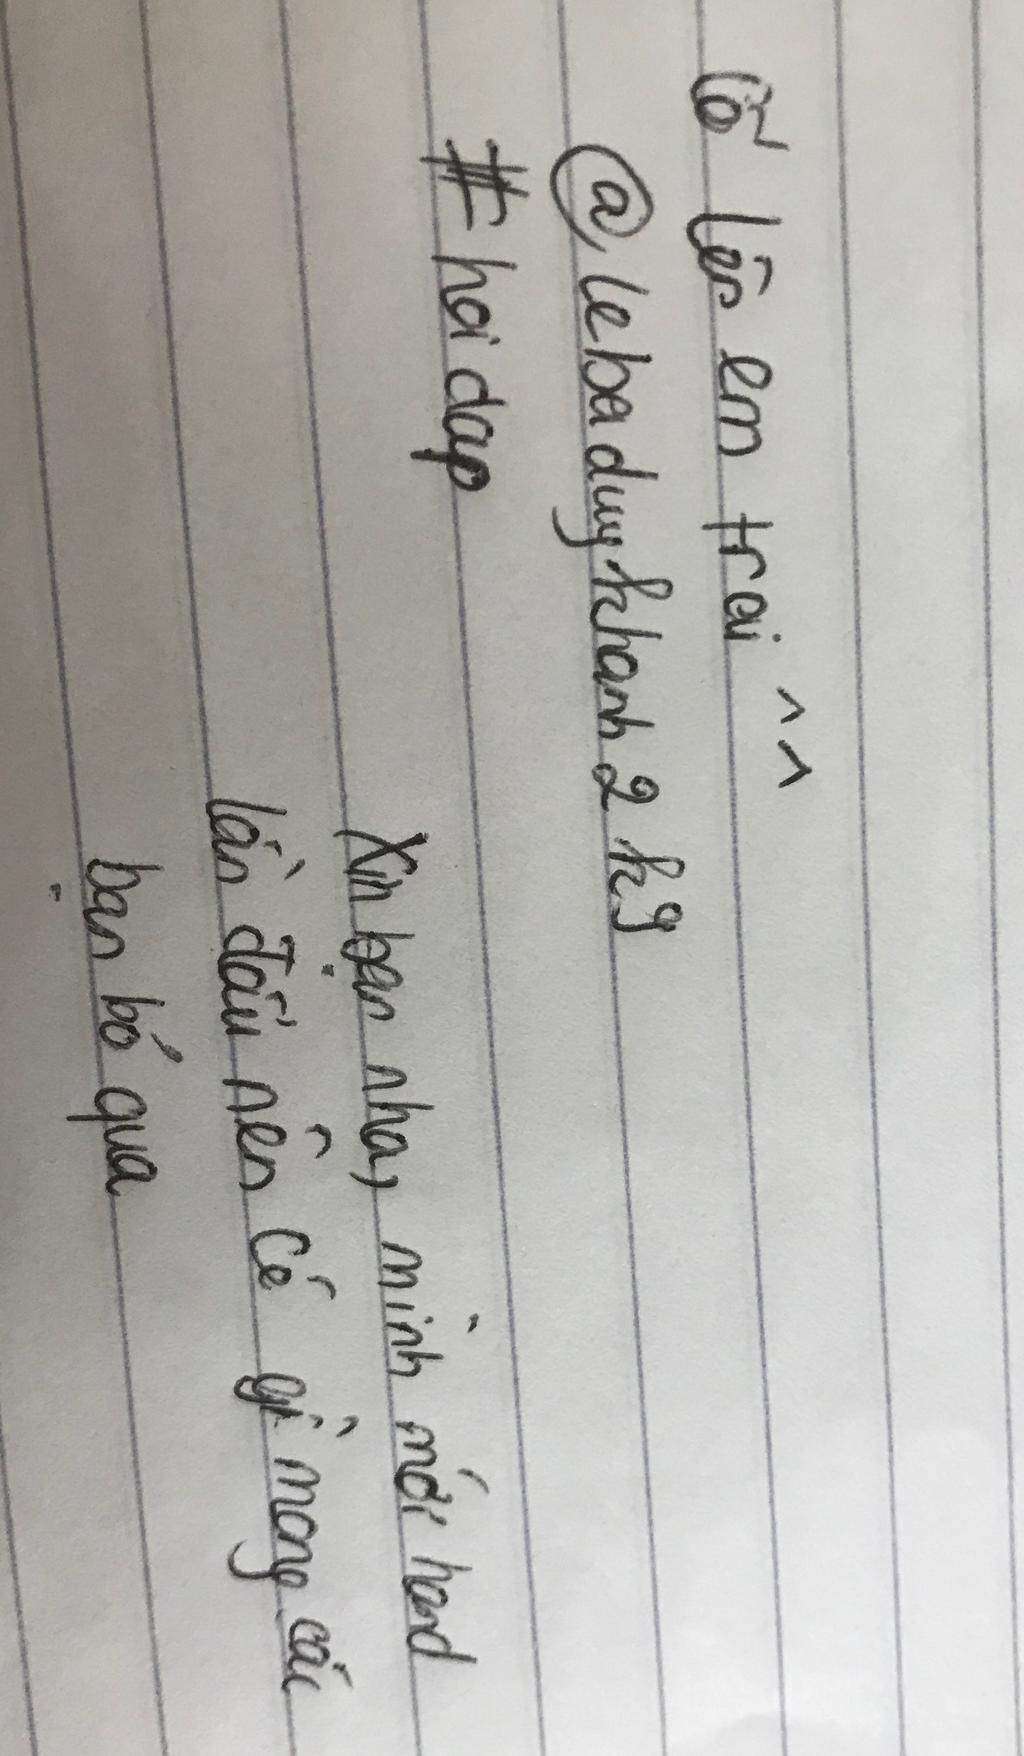 Cố lên em trai ^^
@lebaduykhanh2k9
#hoidap
Xin bạn nha, mình mới hand
lần đầu nên có gì mong các
bạn bỏ qua